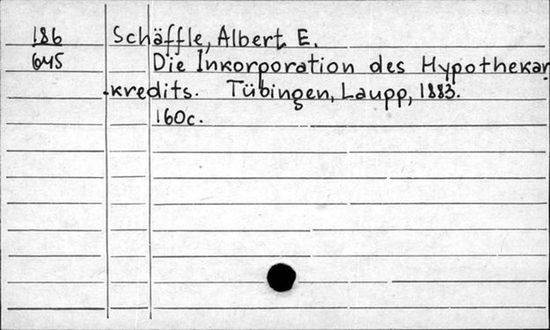 186 Schäffle, Albert E.
645 Die Inkorporation des Hypothekar
-kredits. Tübingen, Laupp, 1883.
160c.